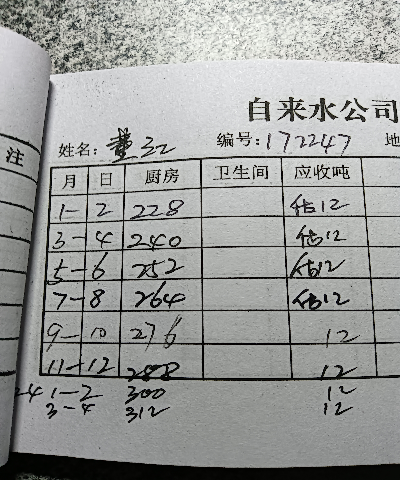 自来水公司
注
姓名: 董红 编号: 172247 地
月 日 厨房 卫生间 应收吨
1-2 228 估12
3-4 240 估12
5-6 252 估12
7-8 264 估12
9-10 276 12
11-12 288 12
24 1-2 300 12
3-4 312 12